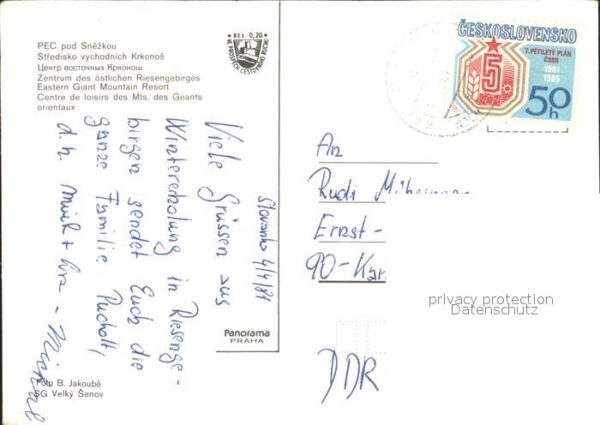 PEC pod Sněžkou
Středisko východních Krkonoš
Центр восточных Крконош
Zentrum des östlichen Riesengebirges
Eastern Giant Mountain Resort
Centre de loisirs des Mts. des Géants
orientaux
Kčs 0,20
VE PROSPĚCH CESTOVNÍHO RUCHU
ČESKOSLOVENSKO
7. PĚTILETÝ PLÁN
ČSSR
1981
1985
5
50h
4/4/81
Viele Grüssen aus
Wintererholung in Riesenge-
birgen sendet Euch die
ganze Familie Pucholt,
d.h. Mirek +
An
Rudi
Ernst-
90-Kar
privacy protection
Datenschutz
DDR
Panorama
PRAHA
Foto B. Jakoubě
SG Velký Šenov